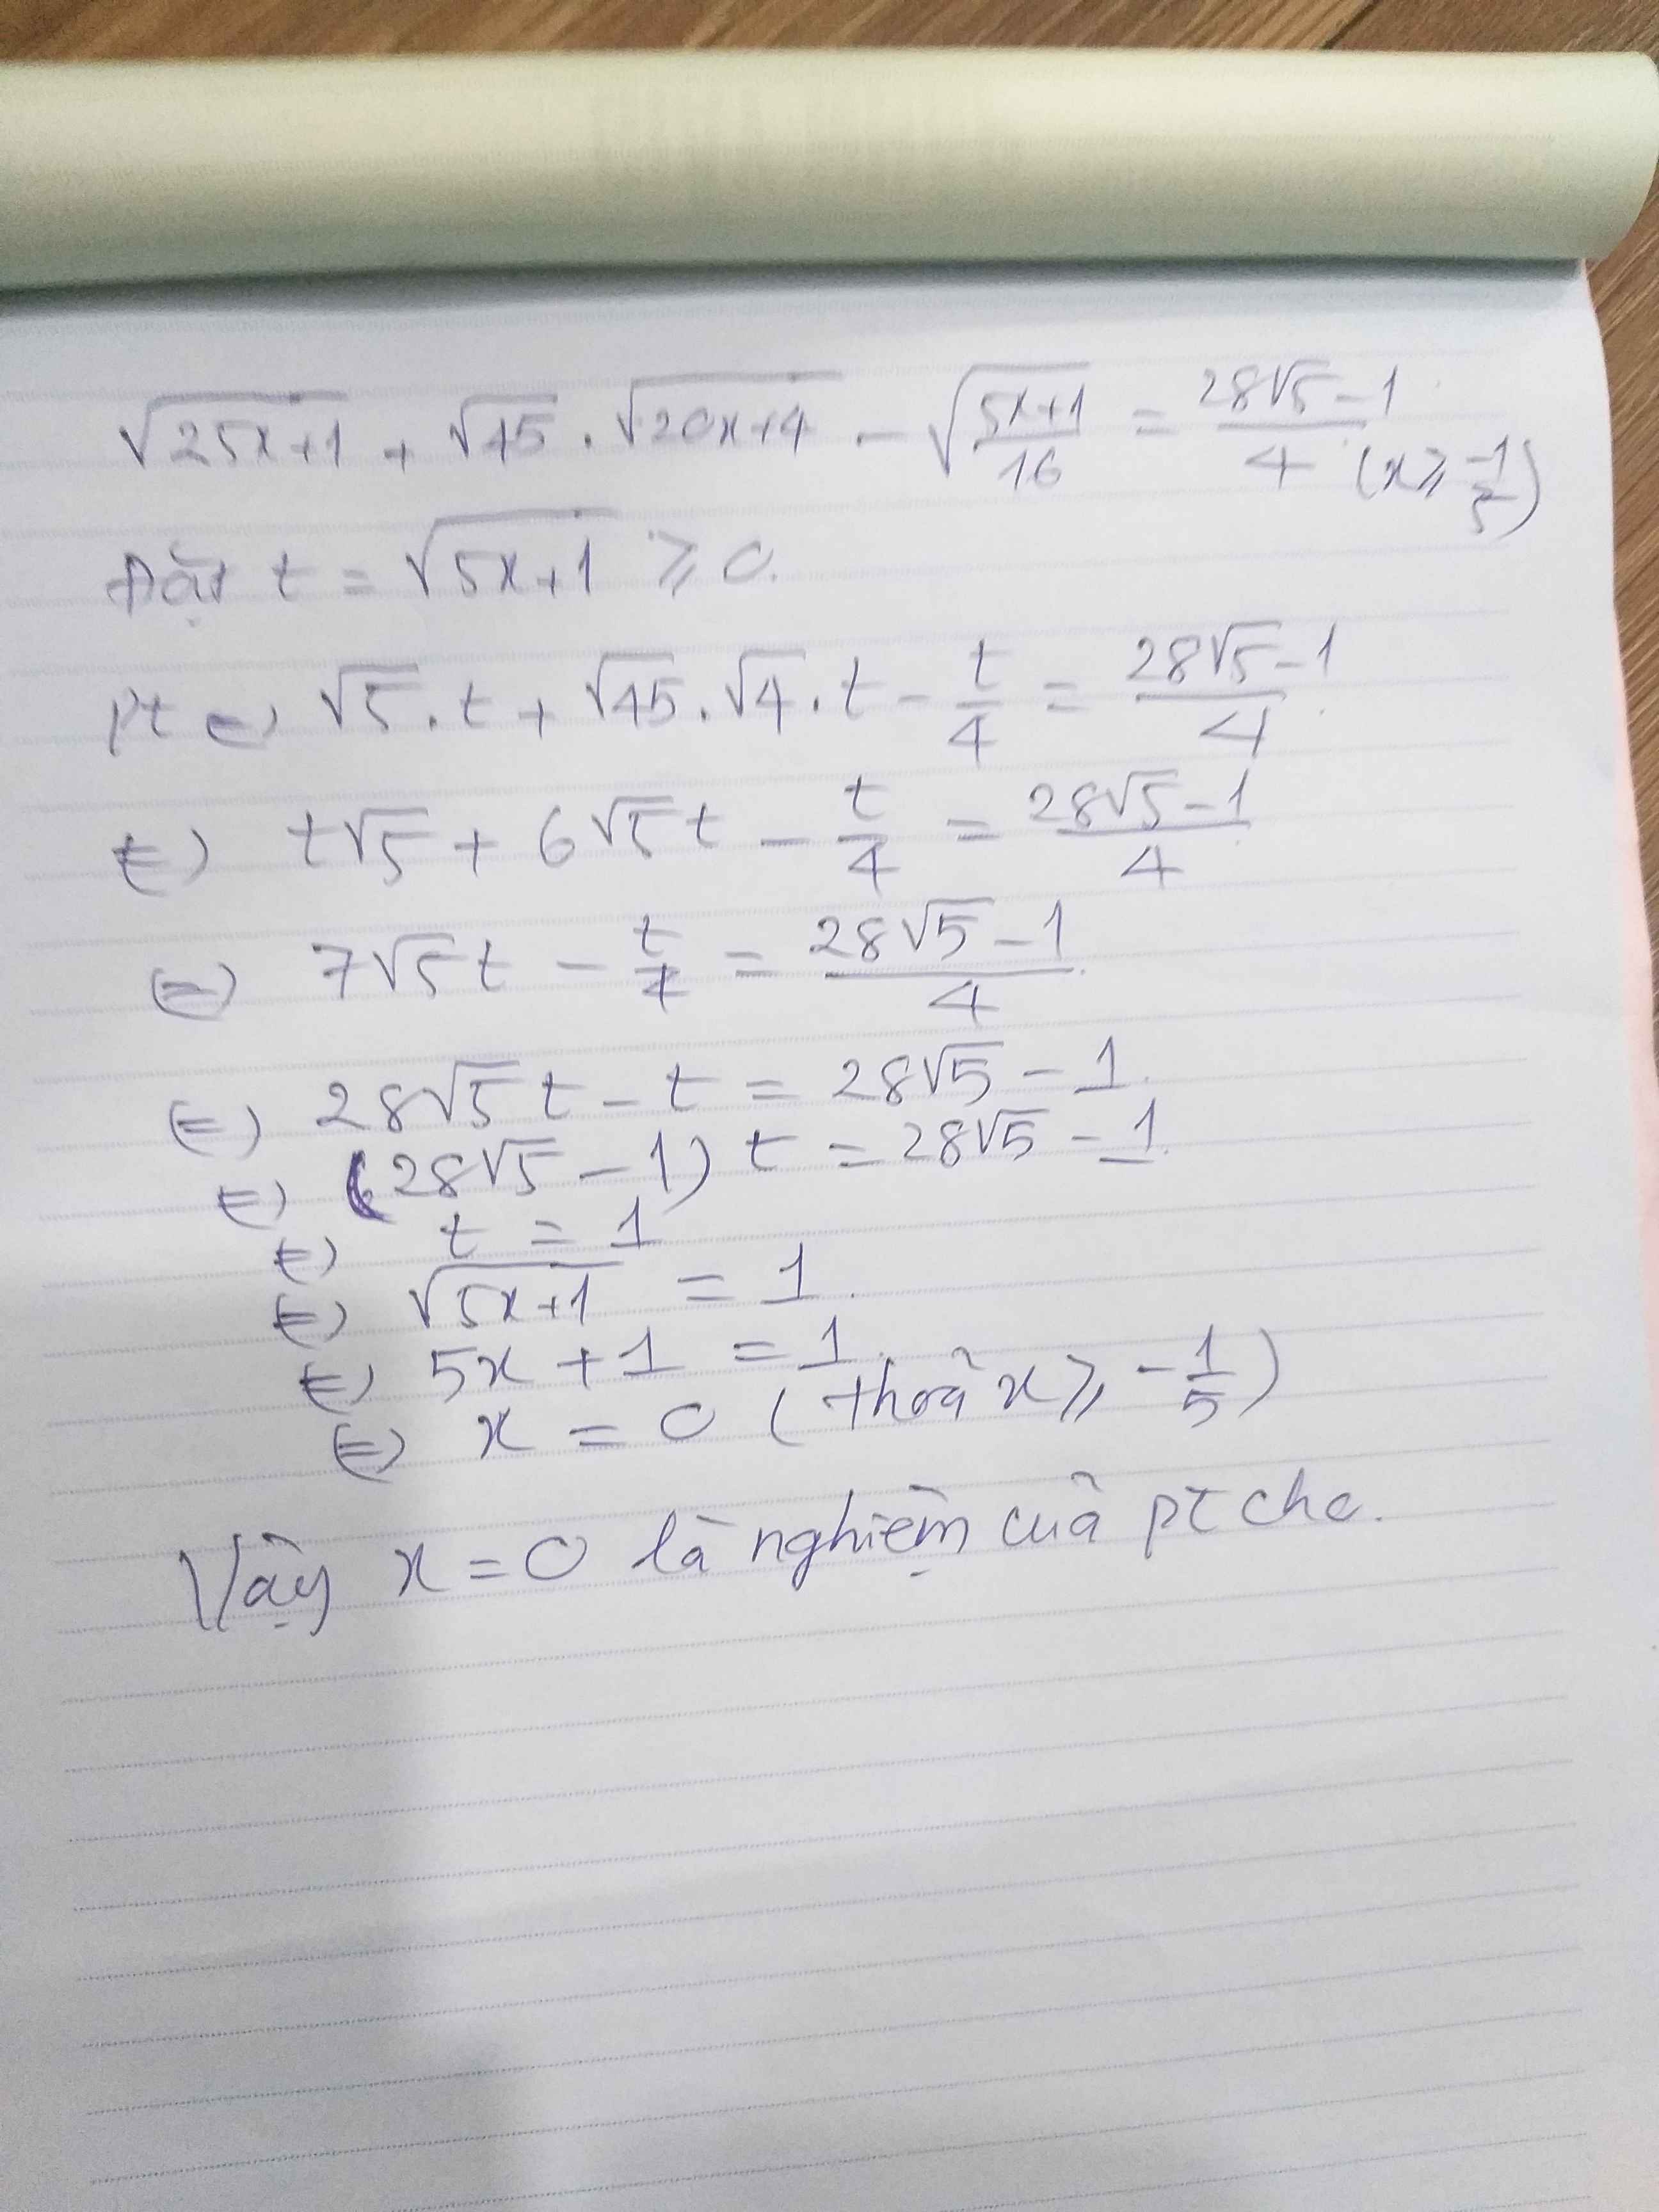 √(25x+1) + √45 . √(20x+4) - √((5x+1)/16) = (28√5-1)/4 (x ≥ -1/5)
Đặt t = √(5x+1) ≥ 0.
Pt ⇔ √5 . t + √45 . √4 . t - t/4 = (28√5-1)/4.
⇔ t√5 + 6√5t - t/4 = (28√5-1)/4
⇔ 7√5t - t/4 = (28√5-1)/4.
⇔ 28√5t - t = 28√5 - 1.
⇔ (28√5 - 1) t = 28√5 - 1.
⇔ t = 1
⇔ √(5x+1) = 1.
⇔ 5x + 1 = 1.
⇔ x = 0 (thoả x ≥ -1/5)
Vậy x = 0 là nghiệm của pt cho.